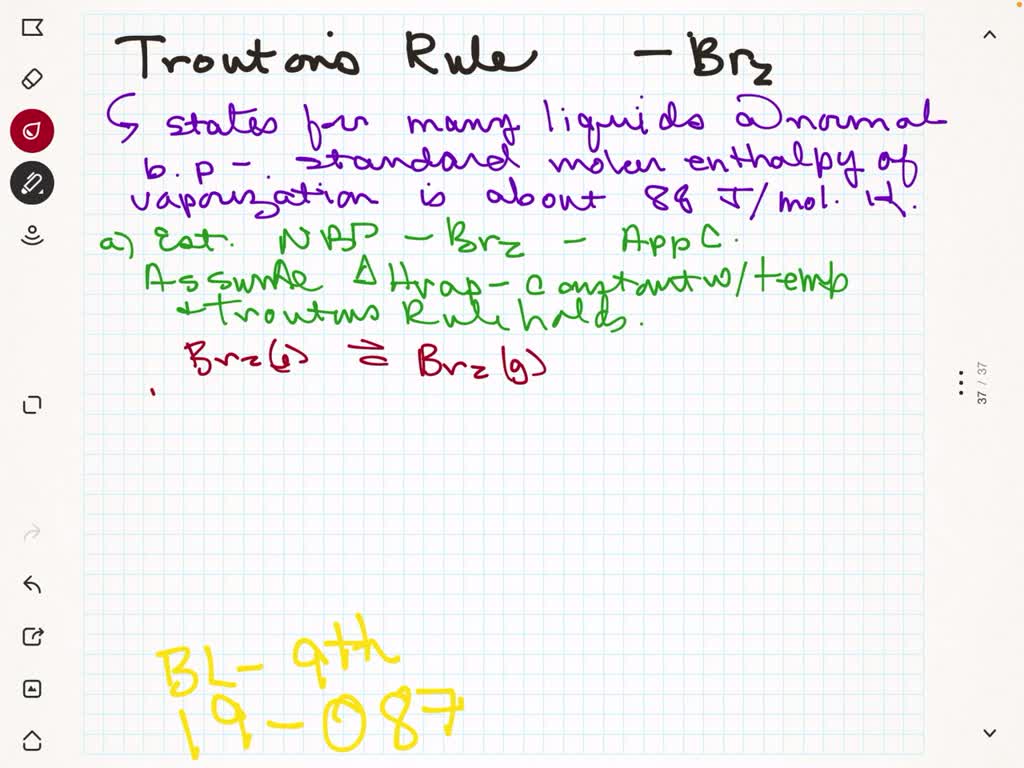 Trouton's Rule - Br2
↳ states for many liquids @ normal
b.p - standard molar enthalpy of
vaporization is about 88 J/mol. K.
a) Est. NBP - Br2 - App C.
Assume ΔHvap - constant w/ temp
+ Troutons Rule holds.
Br2(l) ⇌ Br2(g)
37 / 37
BL - 9th
19-087